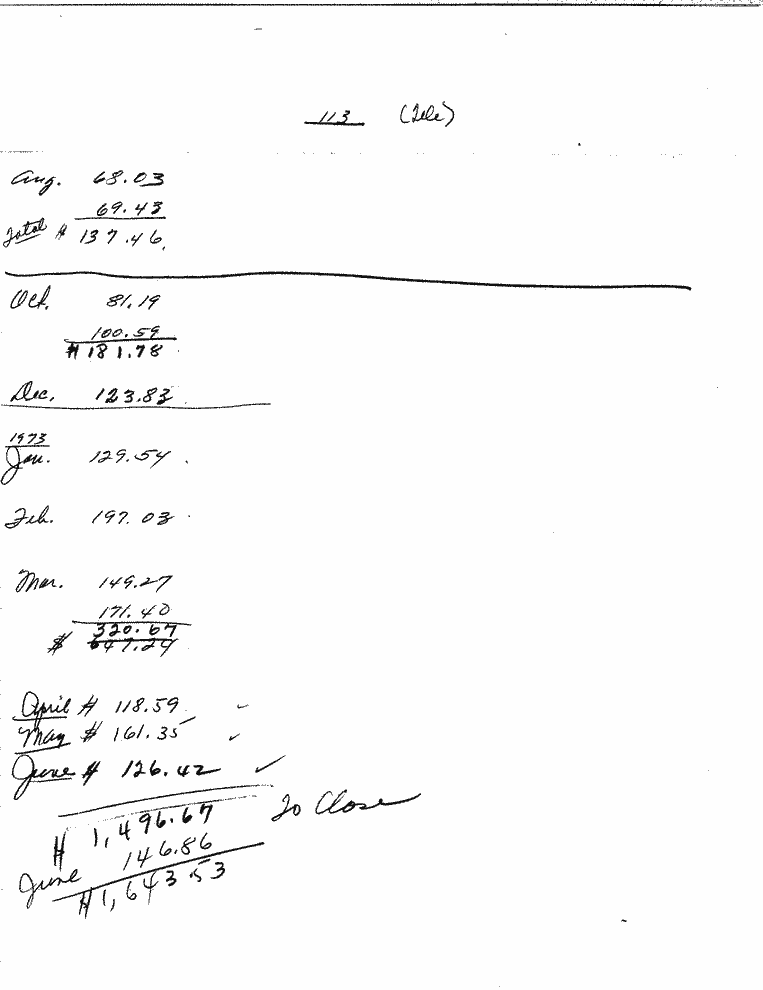 113 (Tele)
Aug. 68.03
69.43
Total $ 137.46
Oct. 81.19
100.59
$ 181.78
Dec. 123.83
1973
Jan. 129.54
Feb. 197.03
Mar. 149.27
171.40
320.67
$ 647.24
April $ 118.59
May $ 161.35
June $ 126.42
$ 1,496.67 To Close
June 146.86
$ 1,643.53